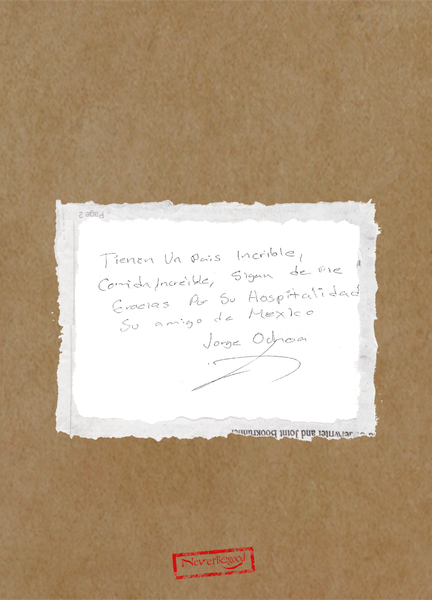 Page 2
Tienen Un País Increíble,
Comida Increíble, Sigan de
Gracias Por Su Hospitalidad
Su amigo de Mexico
Jorge Ochoa
and Joint Bookrunner